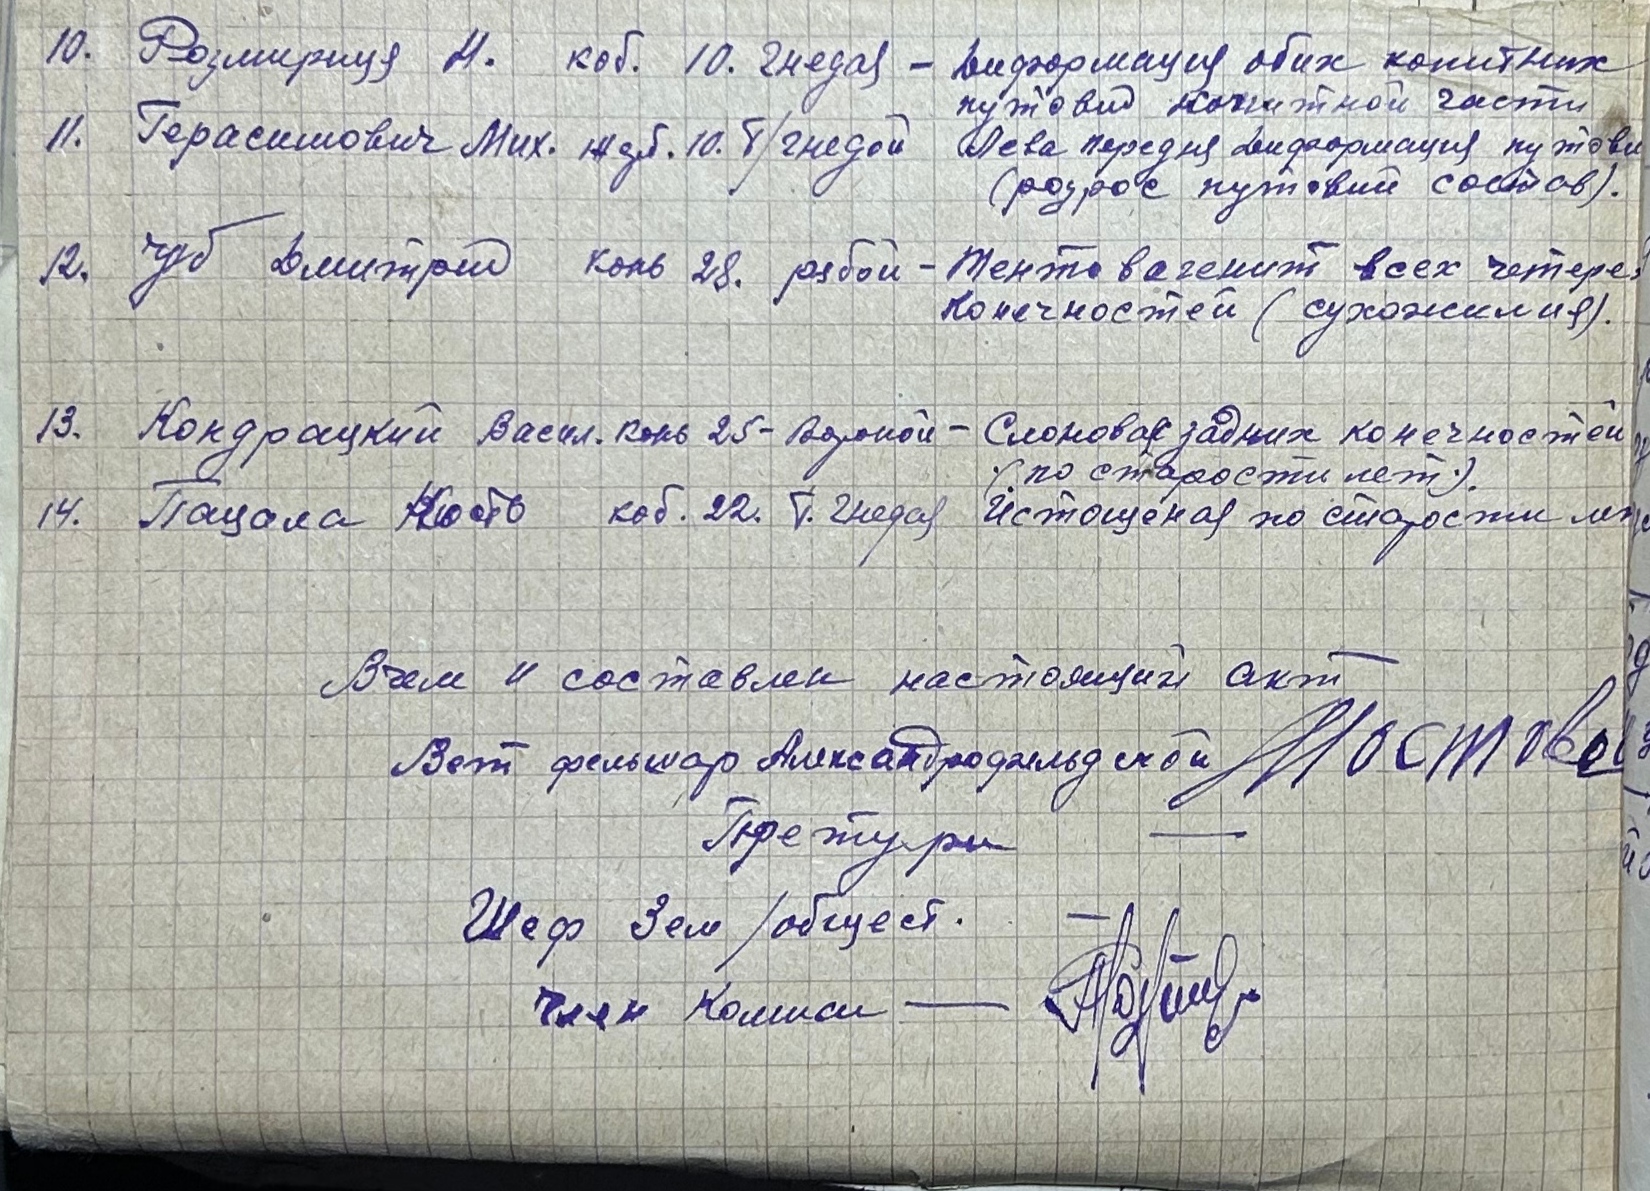 10. Розмирица Н. коб. 10. гнедая – Диформация обих копитних
путовид копитной части
11. Герасимович Мих. жуб. 10. т/гнедой Лева передня диформация путови
(розрос путовий состав).
12. Чуб Дмитрий конь 28. рябой – Тентовагенит всех четерех
конечностей (сухожилия).
13. Кондрацкий Васил. конь 25 – Вороной – Слоновая задних конечностей
(по старости лет).
14. Пацала Кость коб. 22. т. гнедая Истощеная по старости лет
Вчем и составлен настоящий акт
Вет фельшар Александрофильдской Мостовой
Претури —
Шеф Зем/общест. —
Член Комиси —